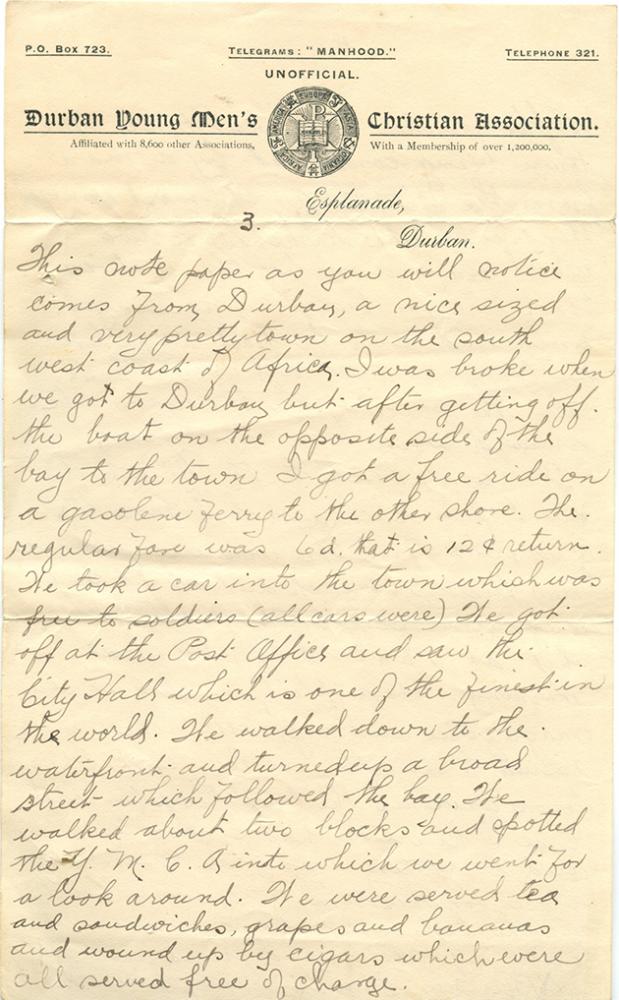 P.O. Box 723.
TELEGRAMS: "MANHOOD."
TELEPHONE 321.
UNOFFICIAL.
Durban Young Men's Christian Association.
Affiliated with 8,600 other Associations, With a Membership of over 1,200,000.
Esplanade,
3.
Durban.
This note paper as you will notice
comes from Durban, a nice sized
and very pretty town on the south
west coast of Africa. I was broke when
we got to Durban but after getting off
the boat on the opposite side of the
bay to the town I got a free ride on
a gasolene ferry to the other shore. The
regular fare was 6d. that is 12¢ return.
We took a car into the town which was
free to soldiers (all cars were) We got
off at the Post Office and saw the
City Hall which is one of the finest in
the world. We walked down to the
waterfront and turned up a broad
street which followed the bay. We
walked about two blocks and spotted
the Y. M. C. A into which we went for
a look around. We were served tea
and sandwiches, grapes and bananas
and wound up by cigars which were
all served free of charge.